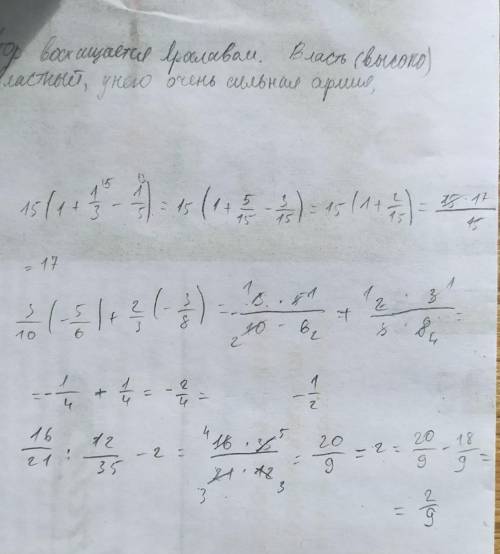 тор восхищается Ярославом. Власть (высоко)
властный, у него очень сильная армия,
15 (1 + 1/3 - 1/5) = 15 (1 + 5/15 - 3/15) = 15 (1 + 2/15) = 15 · 17 / 15
= 17
3/10 (- 5/6) + 2/3 (- 3/8) = - 3 · 5 / 10 · 6 + 2 · 3 / 3 · 8 =
= - 1/4 + 1/4 = - 2/4 = - 1/2
16/21 : 12/35 - 2 = 16 · 35 / 21 · 12 = 20/9 = 2 = 20/9 - 18/9 =
= 2/9